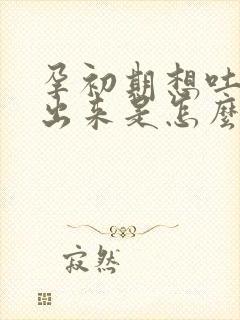 孕初期想吐
出来是怎麼
寂然